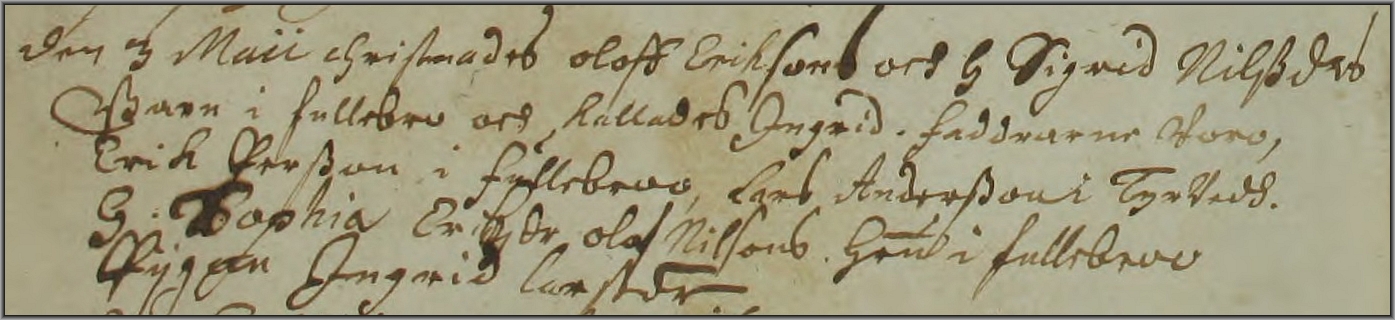 den 3 Maii christnades oloff Eriksons och h Sigrid Nilßdrs
Barn i fullebro och kallades Ingrid. faddrarne voro,
Erik Perßon i fullebroo, Lars Anderßon i Tyrved.
H. Sophia Erikßdr olof Nilsons. Hru i fullebroo
Pijgan Ingrid larsdr